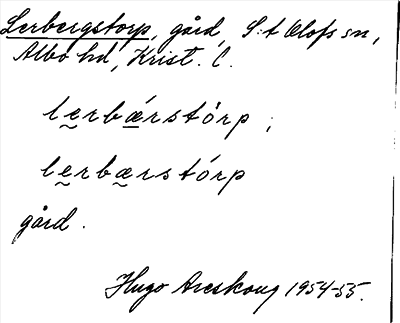 Lerbergstorp, gård, S:t Olofs sn,
Albo hd, Krist. l.
le̮rbǽ̮rstȯrp ;
le̮rbæ̮rstórp
gård.
Hugo Areskoug 1954-55.